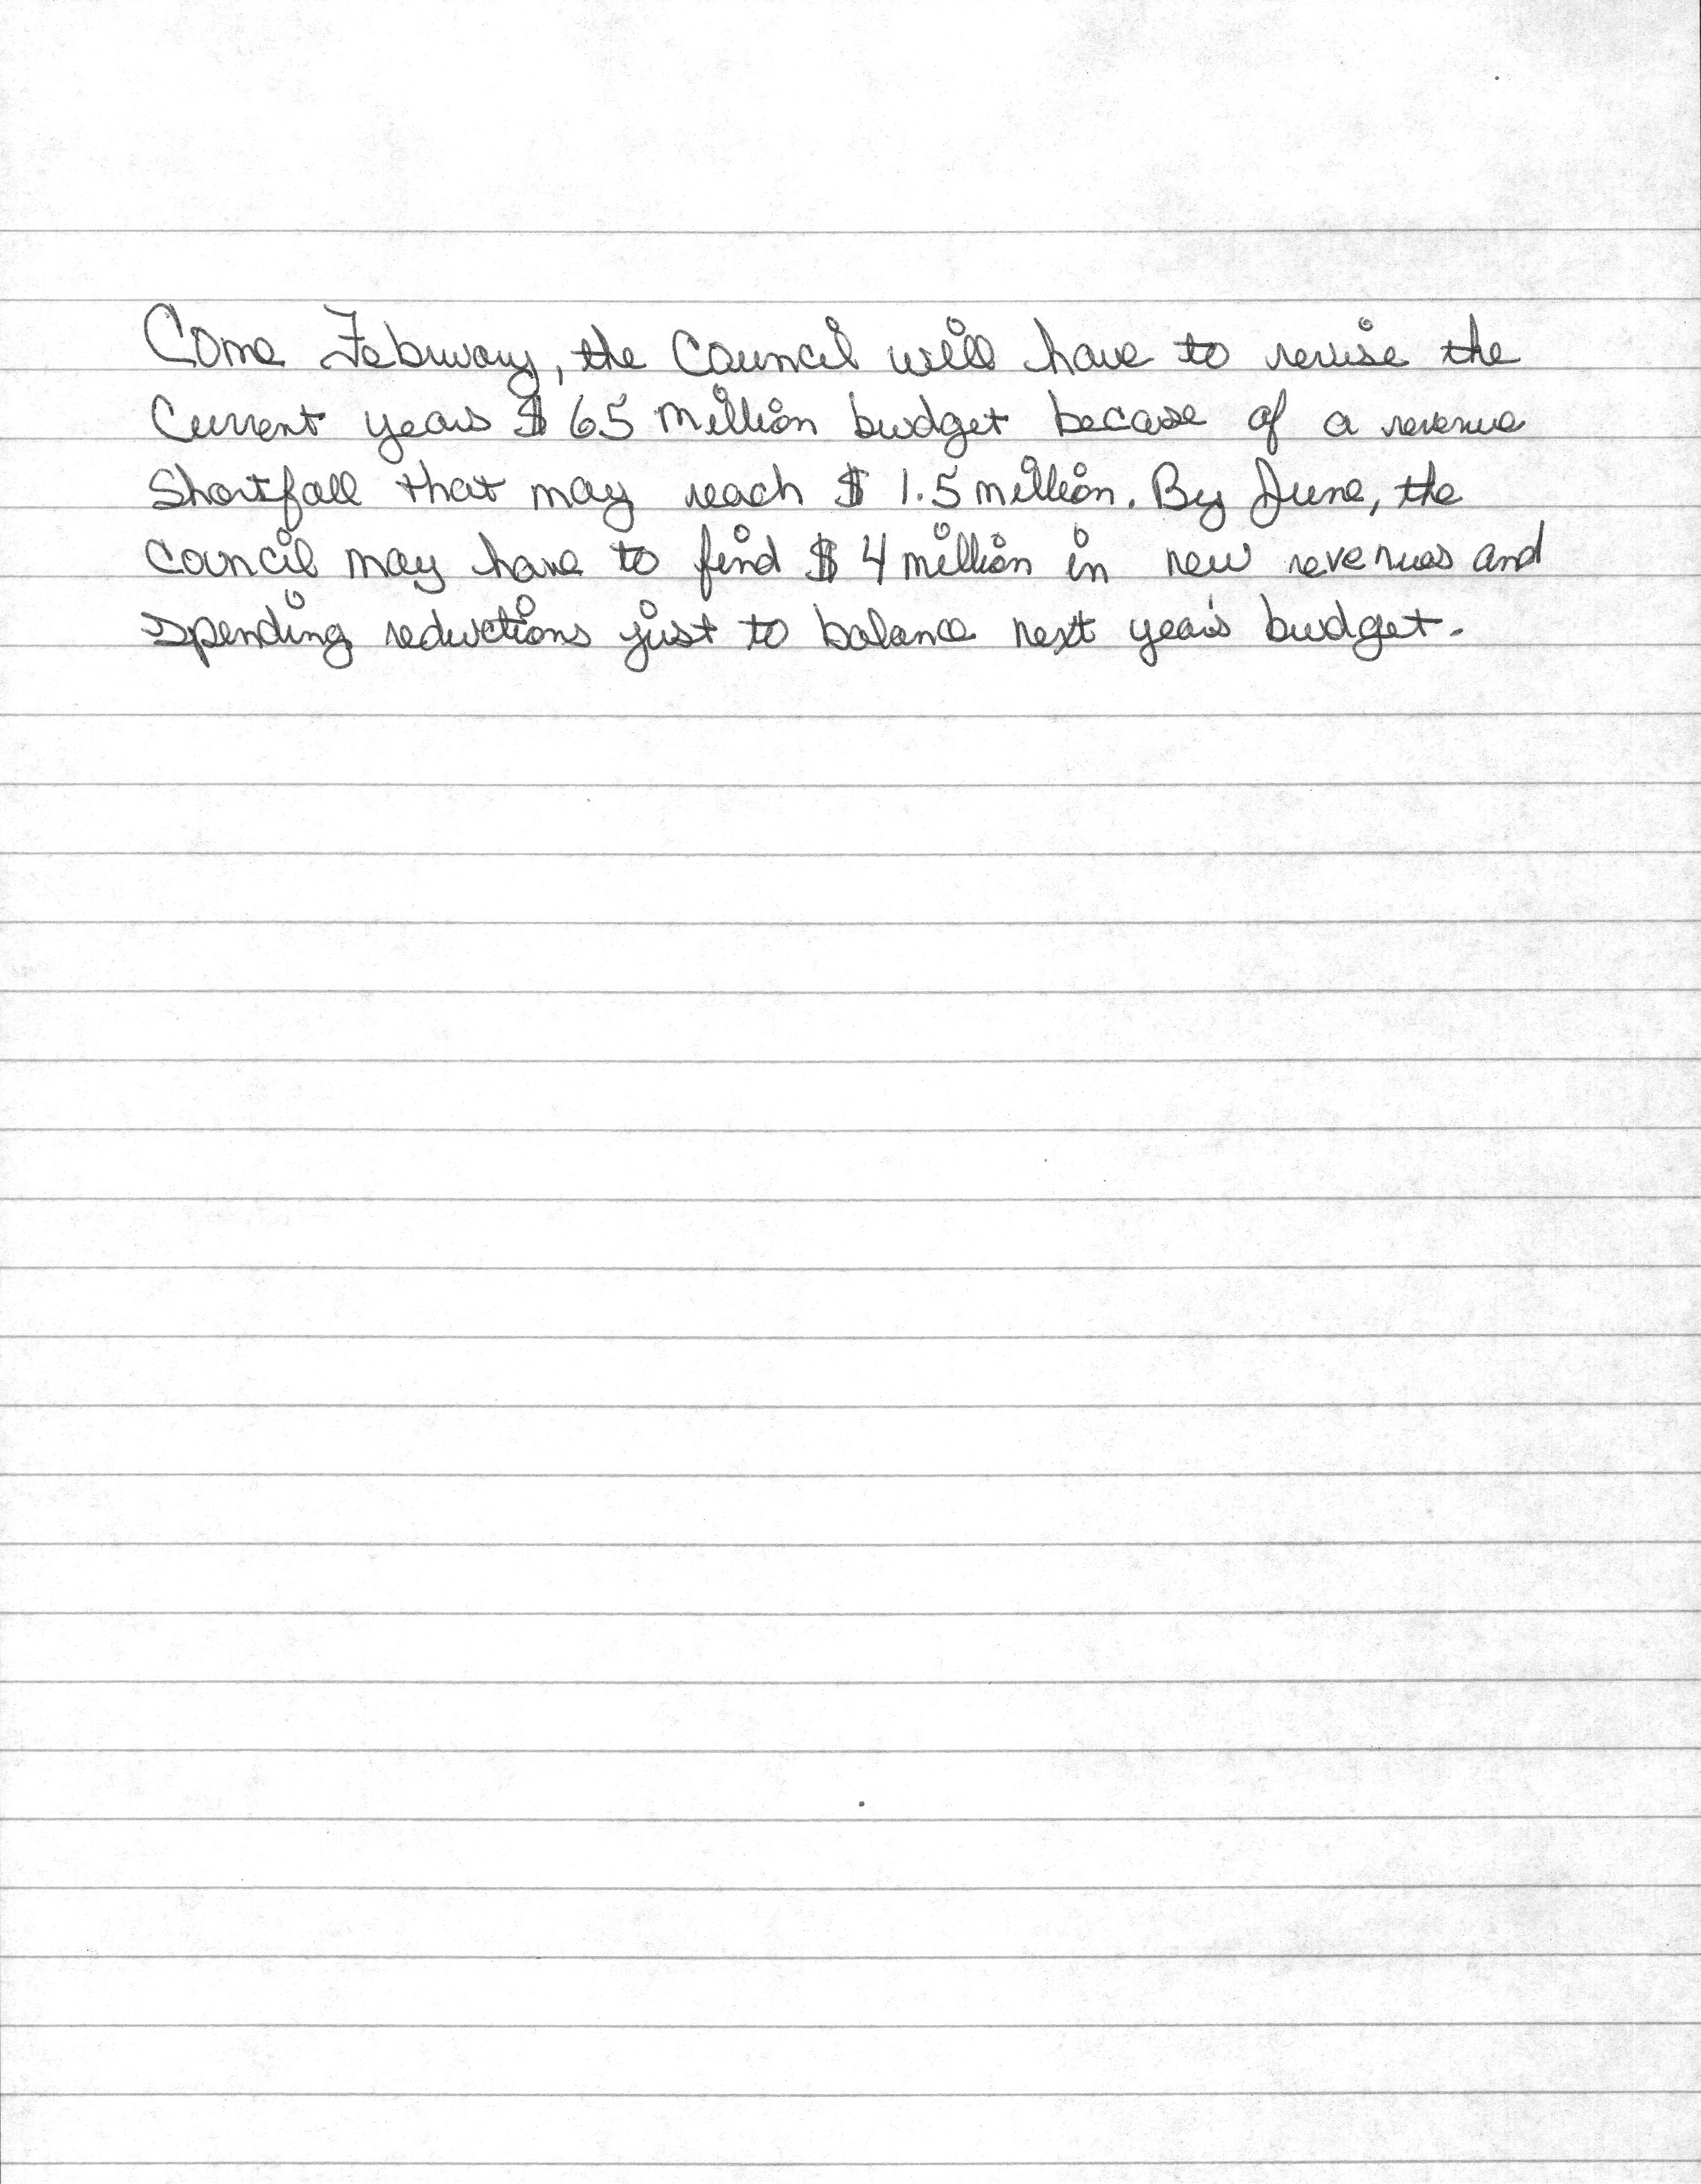 Come February, the Council will have to revise the
Current years $65 Million budget becase of a revenue
Shortfall that may reach $1.5 million. By June, the
Council may have to find $4 million in new revenues and
spending reductions just to balance next year's budget.